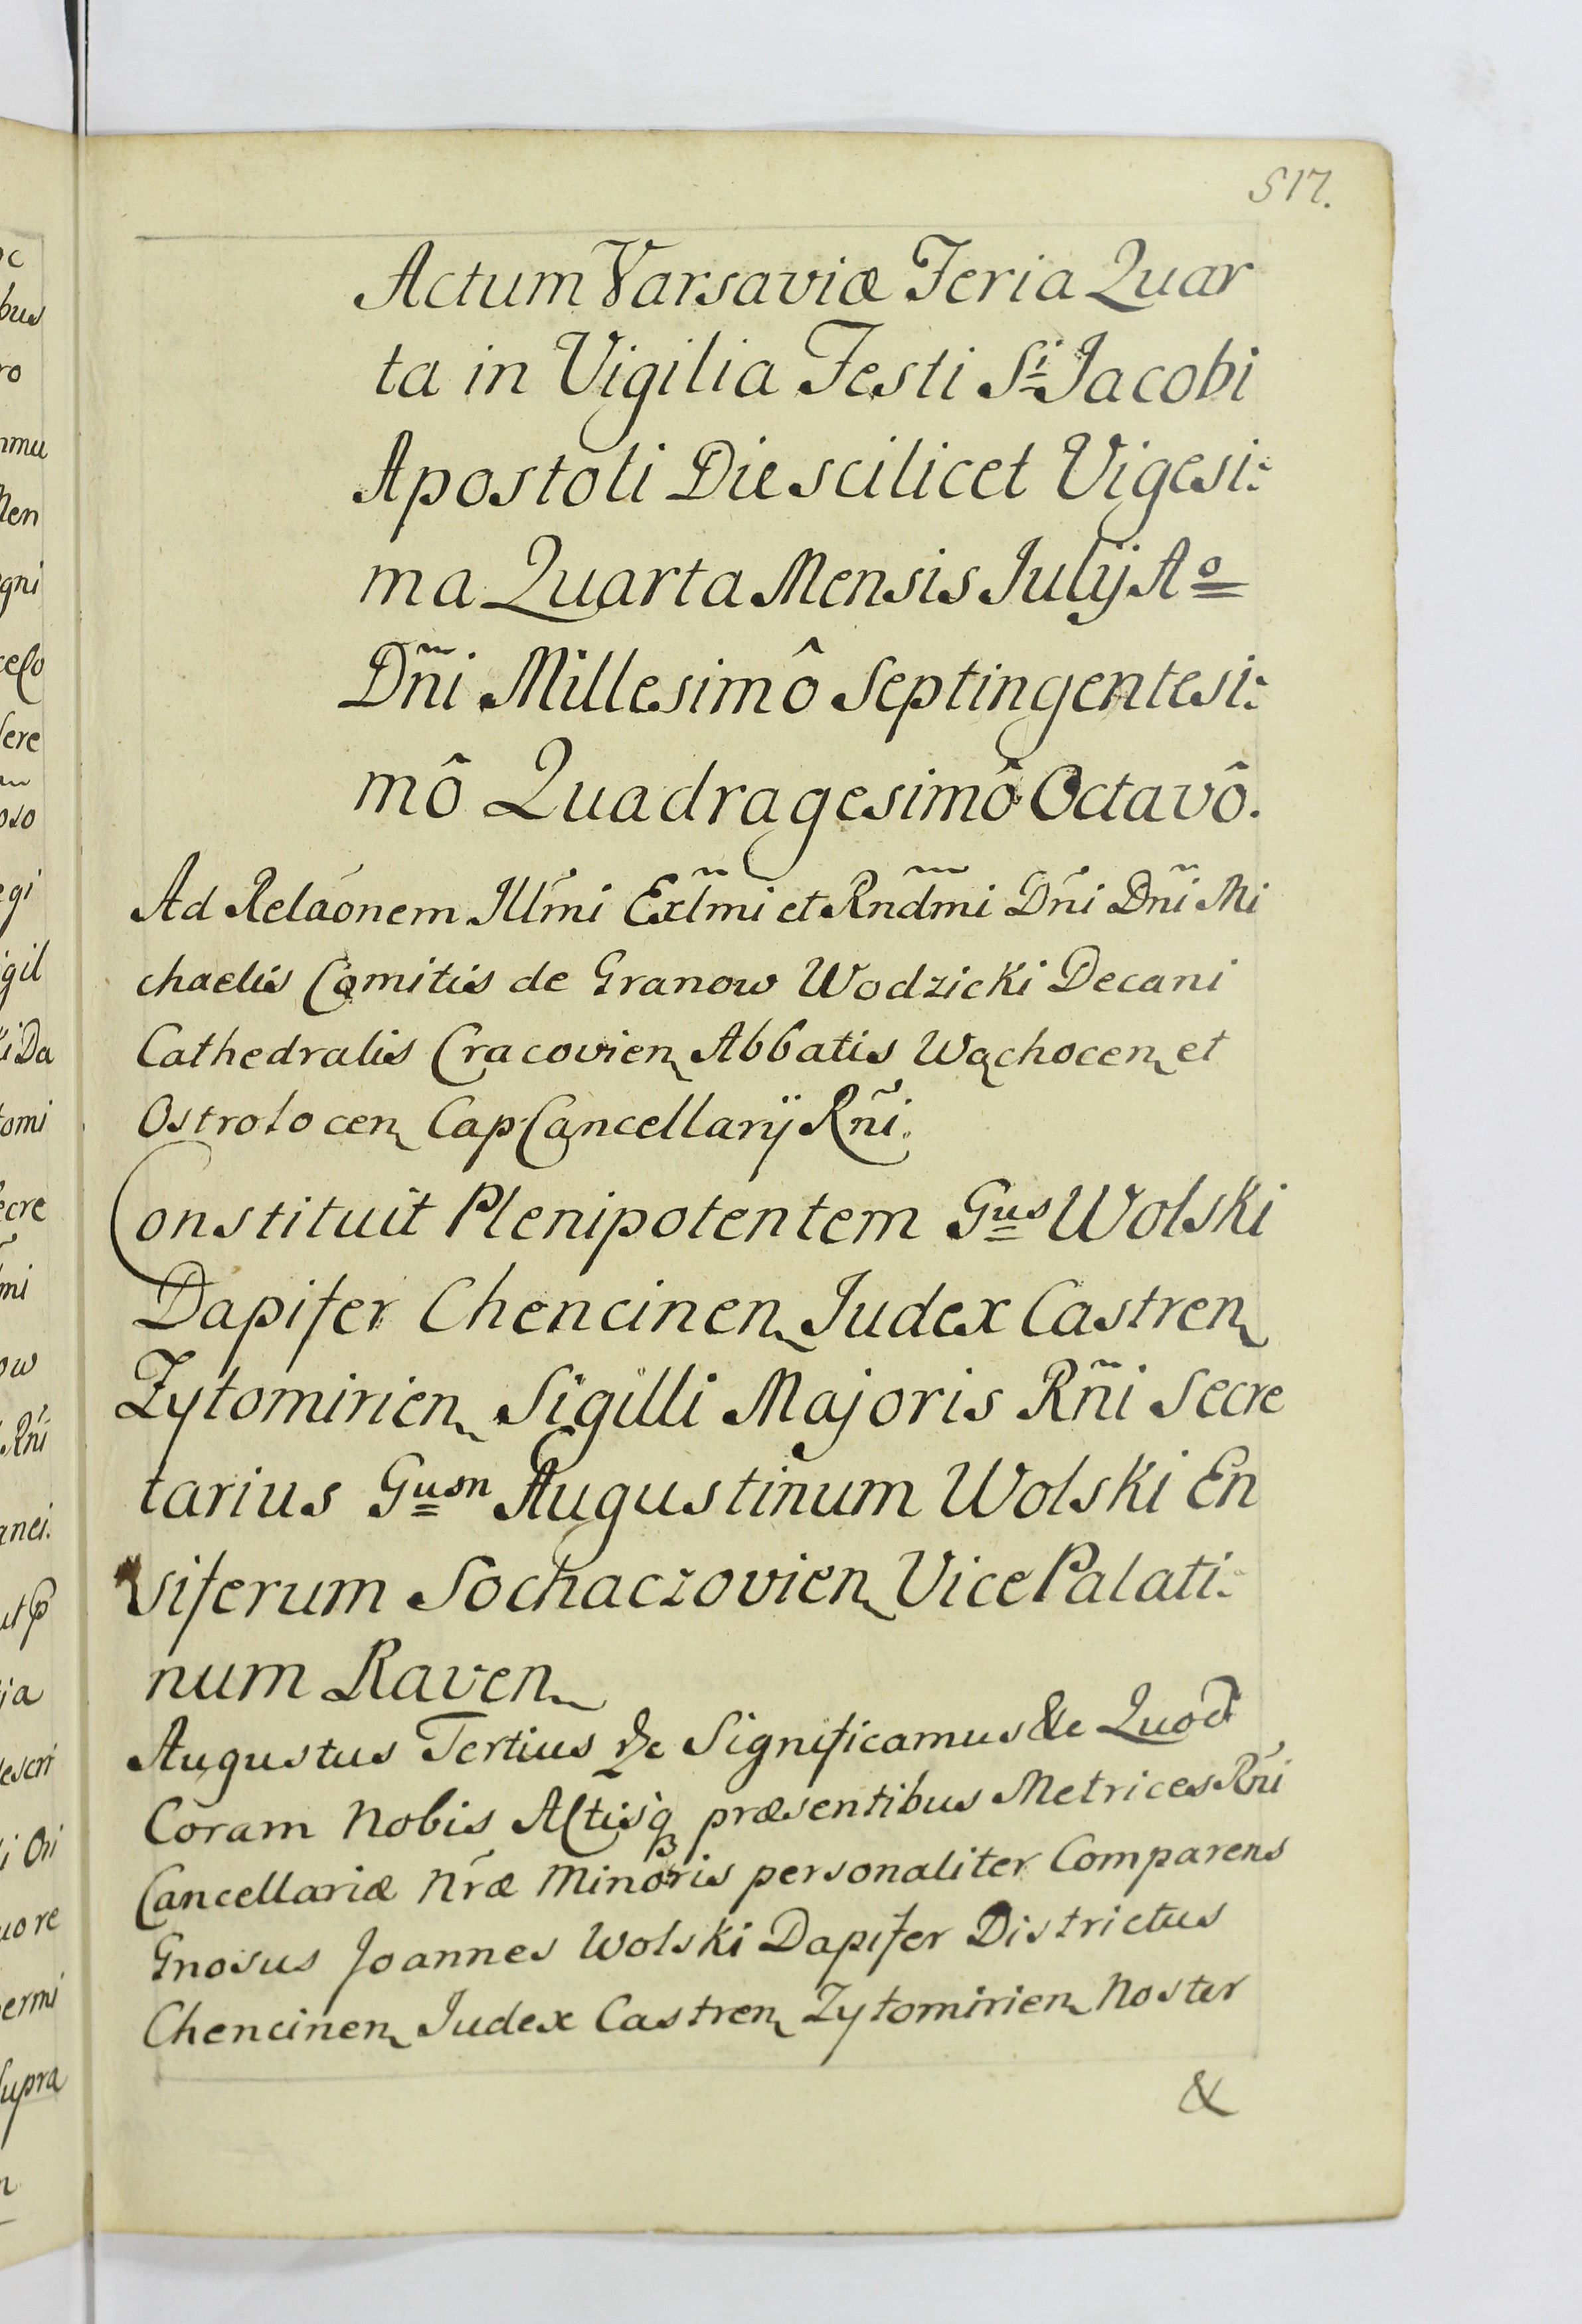 517.
Actum Varsaviæ Feria Quar
ta in Vigilia Festi Sⁱ Jacobi
Apostoli Die scilicet Vigesi:
ma Quarta Mensis Julij Aº
Dñi Millesimô Septingentesi:
mô Quadragesimô Octavô.
Ad Relaónem Illm̃i Exlm̃i et Rndm̃i Dñi Dñi Mi
chaelis Comitis de Granow Wodzicki Decani
Cathedralis Cracovien Abbatis Wąchocen et
Ostrolocen Cap Cancellarij Rñi.
Constituit Plenipotentem Gᵘˢ Wolski
Dapifer Chencinen Judex Castren
Zytomirien Sigilli Majoris Rñi Secre
tarius Gᵘˢᵐ Augustinum Wolski En
siferum Sochaczovien Vice Palati:
num Raven
Augustus Tertius &c Significamus &c Quod
Coram Nobis Actisq præsentibus Metrices Rñi
Cancellariæ Nr̃æ Minoris personaliter Comparens
Gnosus Joannes Wolski Dapifer Districtus
Chencinen Judex Castren Zytomirien Noster
&